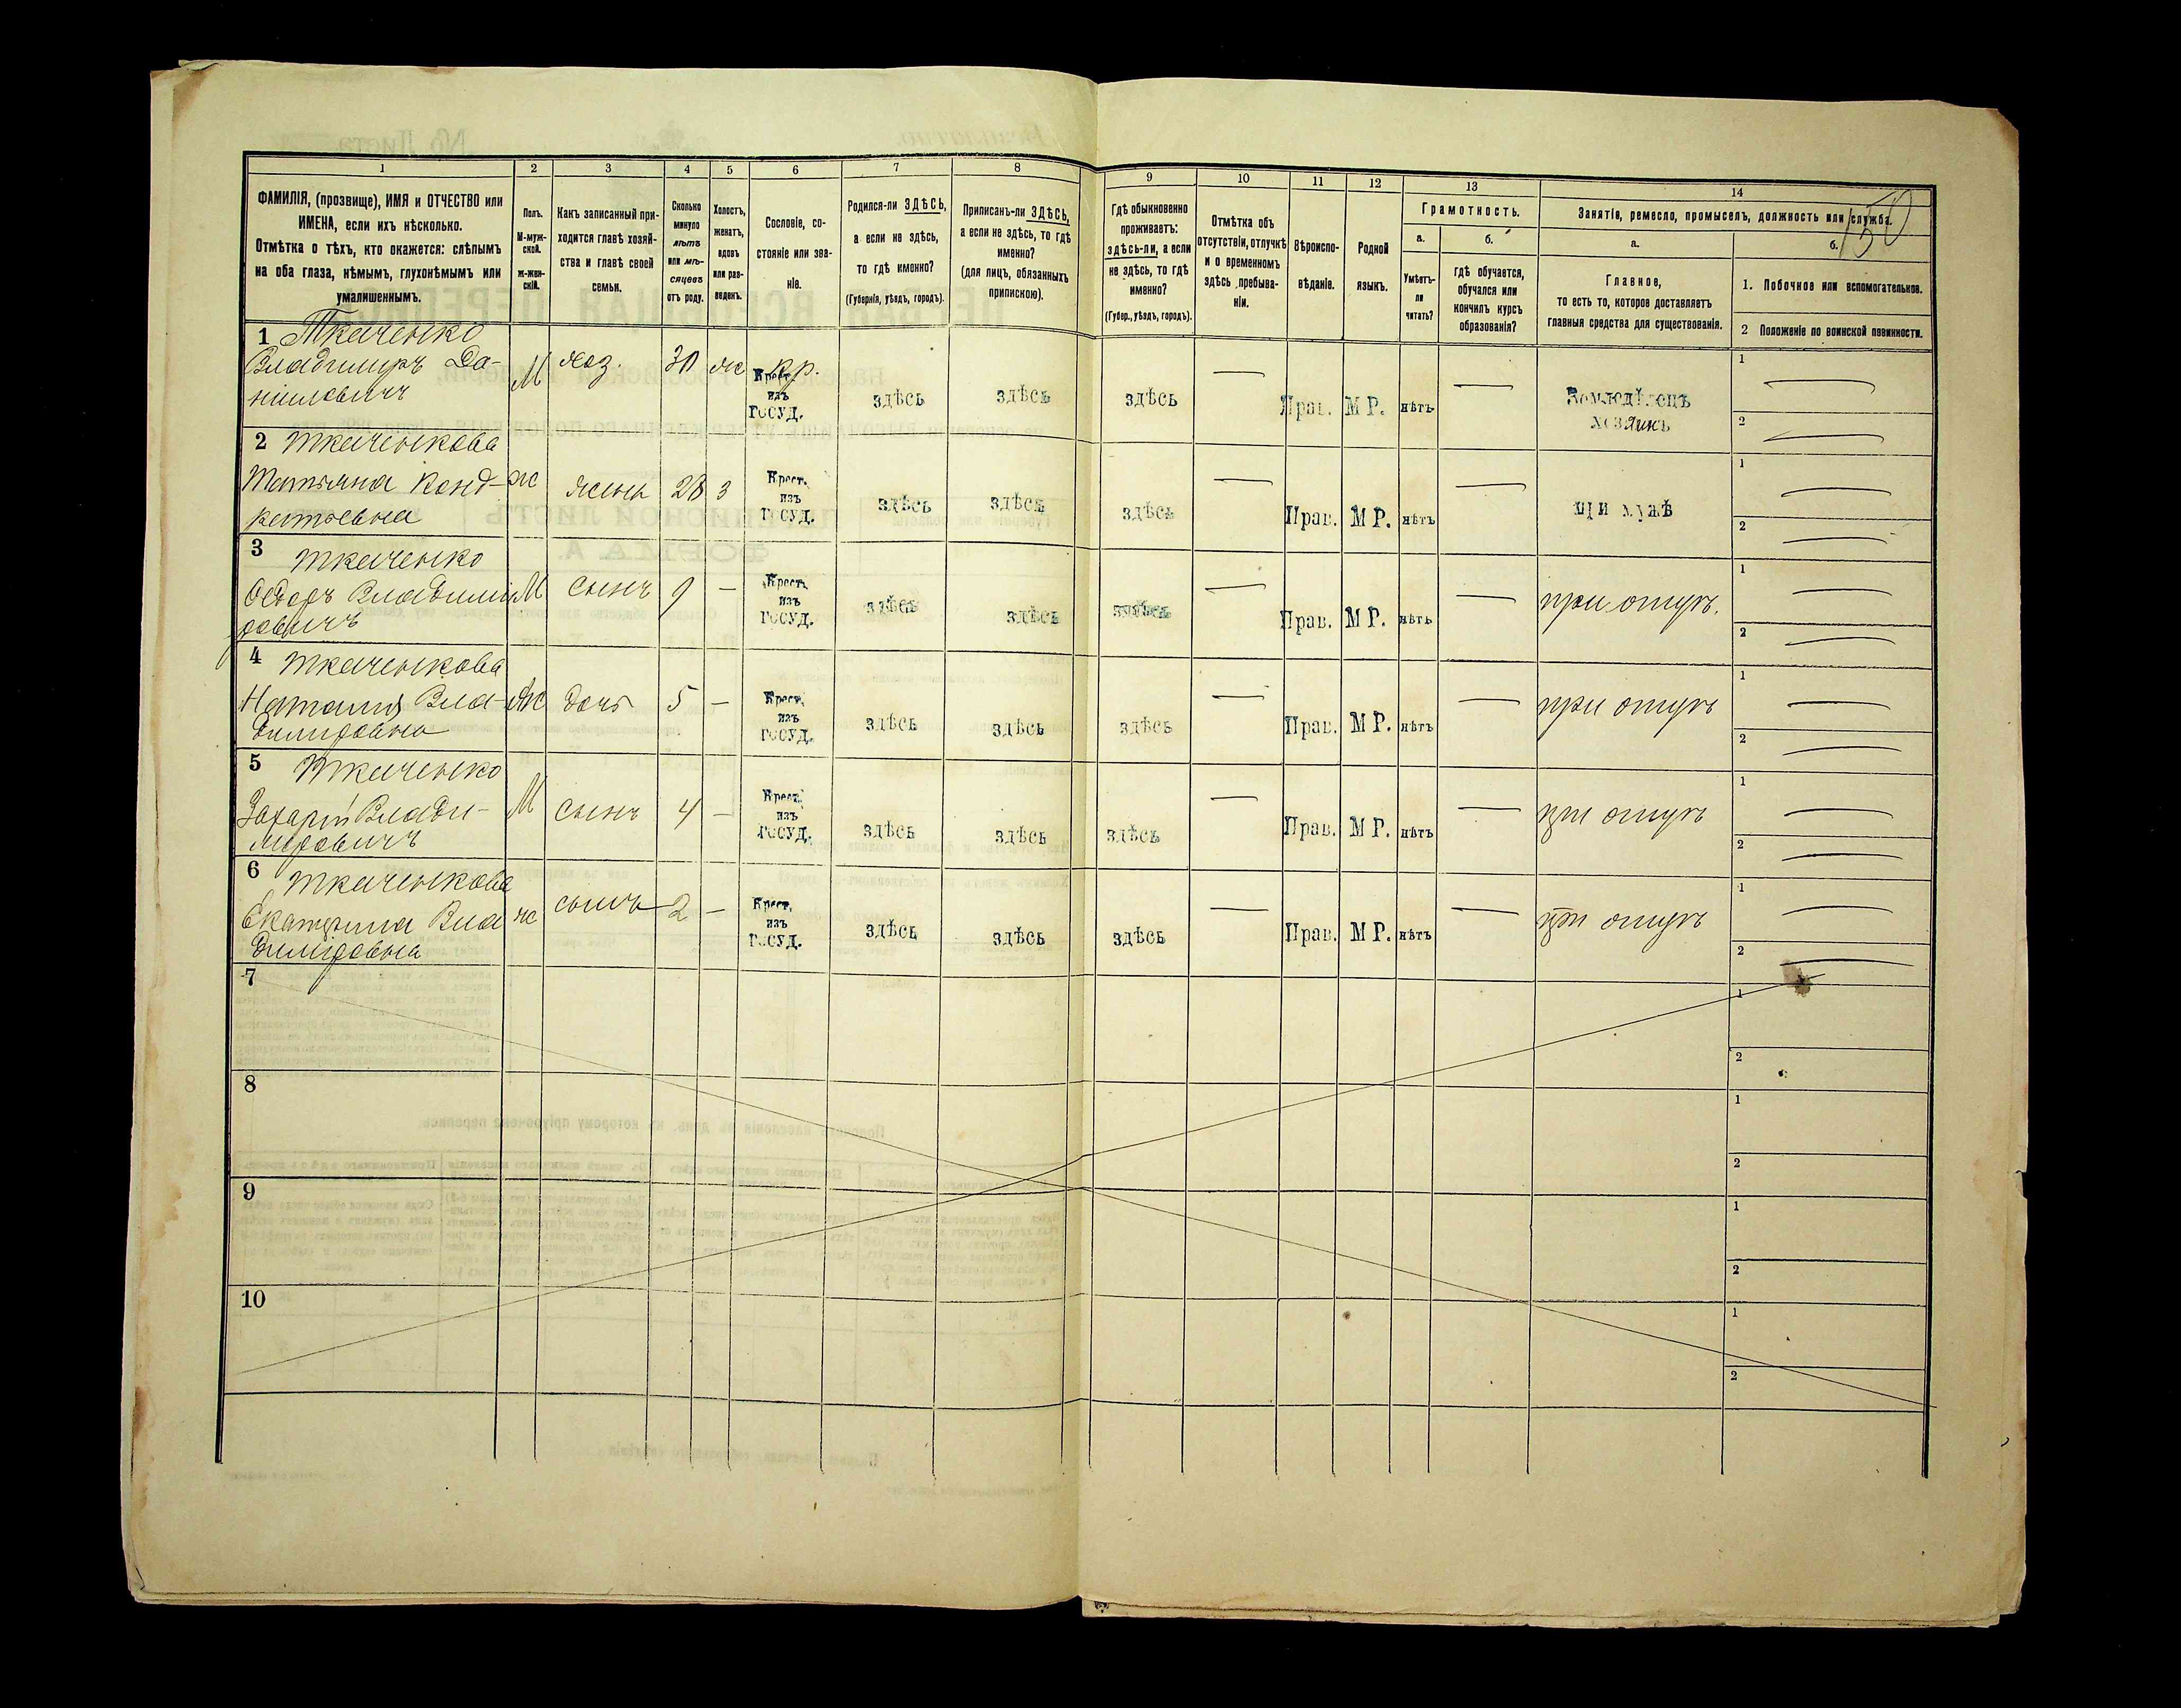 150
1 2 3 4 5 6 7 8 9 10 11 12 13 14
ФАМИЛІЯ, (прозвище), ИМЯ и ОТЧЕСТВО или
ИМЕНА, если ихъ нѣсколько.
Отмѣтка о тѣхъ, кто окажется: слѣпымъ
на оба глаза, нѣмымъ, глухонѣмымъ или
умалишеннымъ.
Полъ.
М-муж-
ской.
Ж-жен-
скій.
Какъ записанный при-
ходится главѣ хозяй-
ства и главѣ своей
семьи.
Сколько
минуло
лѣтъ
или мѣ-
сяцевъ
отъ роду.
Холостъ,
женатъ,
вдовъ
или раз-
веденъ.
Сословіе, со-
стояніе или зва-
ніе.
Родился-ли ЗДѢСЬ,
а если не здѣсь,
то гдѣ именно?
(Губернія, уѣздъ, городъ).
Приписанъ-ли ЗДѢСЬ,
а если не здѣсь, то гдѣ
именно?
(для лицъ, обязанныхъ
припискою).
Гдѣ обыкновенно
проживаетъ:
здѣсь-ли, а если
не здѣсь, то гдѣ
именно?
(Губер., уѣздъ, городъ).
Отмѣтка объ
отсутствіи, отлучкѣ
и о временномъ
здѣсь пребыва-
ніи.
Вѣроиспо-
вѣданіе.
Родной
языкъ.
Грамотность.
а.
Умѣетъ-
ли
читать?
б.
гдѣ обучается,
обучался или
кончилъ курсъ
образованія?
Занятіе, ремесло, промыселъ, должность или служба.
а.
Главное,
то есть то, которое доставляетъ
главныя средства для существованія.
б.
1. Побочное или вспомогательное.
2 Положеніе по воинской повинности.
1 Ткаченко
Владимиръ Да-
ниловичъ
М хоз. 30 ж кр.
Крест. изъ ГОСУД. здѣсь здѣсь здѣсь — Прав. МР. нѣтъ — Земледѣлецъ
хозяинъ
1 —
2 —
2 Ткаченкова
Татьяна Конд-
ратьевна
ж жена 28 з Крест. изъ ГОСУД. здѣсь здѣсь здѣсь — Прав. МР. нѣтъ — при мужѣ
1 —
2 —
3 Ткаченко
Ѳедоръ Владими
ровичъ
М сынъ 9 — Крест. изъ ГОСУД. здѣсь здѣсь здѣсь — Прав. МР. нѣтъ — при отцѣ.
1 —
2 —
4 Ткаченкова
Наталия Вла-
димировна
Ж дочь 5 — Крест. изъ ГОСУД. здѣсь здѣсь здѣсь — Прав. МР. нѣтъ — при отцѣ
1 —
2 —
5 Ткаченко
Захарій Влади-
мировичъ
М сынъ 4 — Крест. изъ ГОСУД. здѣсь здѣсь здѣсь — Прав. МР. нѣтъ — при отцѣ
1 —
2 —
6 Ткаченкова
Екатерина Вла
димировна
ж сынъ 2 — Крест. изъ ГОСУД. здѣсь здѣсь здѣсь — Прав. МР. нѣтъ — при отцѣ
1 —
2 —
7
1
2
8
1
2
9
1
2
10
1
2